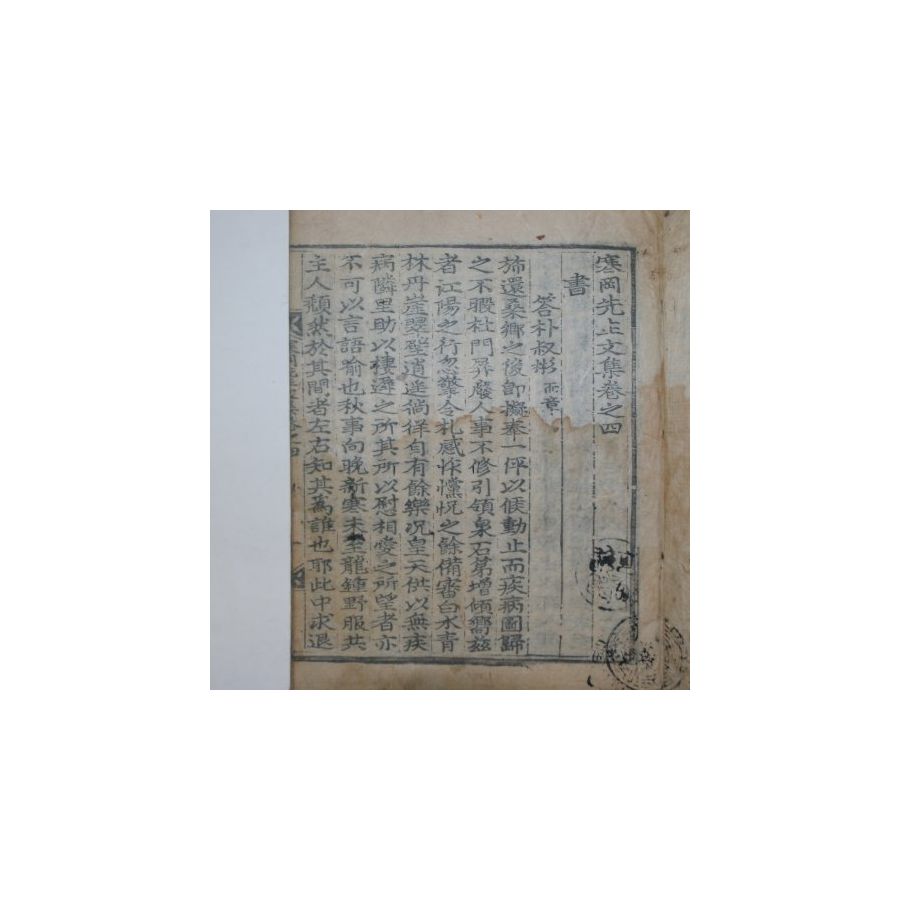 寒岡先生文集卷之四
書
答朴叔彬 兩章
旆還桑鄕之後卽擬奉一伻以候動止而疾病圖歸
之不暇杜門畀廢人事不修引領泉石第增傾嚮玆
者江陽之行忽擎令札感怍戃怳之餘備審白水靑
林丹崖翠壁逍遙徜徉自有餘樂况皇天供以無疾
病隣里助以棲遲之所其所以慰相愛之所望者亦
不可以言語喻也秋事向晚新寒未至龍鍾野服共
主人頹然於其間者左右知其爲誰也耶此中求退